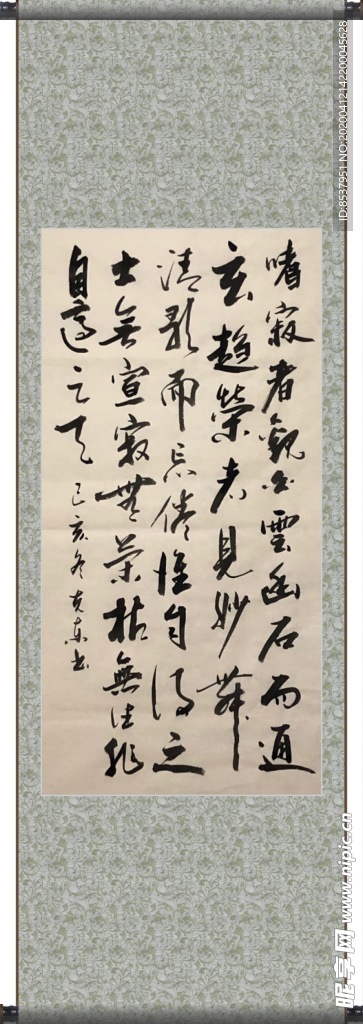 嗜寂者觀白雲幽石而通
玄趨榮者見妙舞
清歌而忘倦惟自得之
士無宣寂無榮枯無往非
自適之天
己亥冬克東书
ID:8537951 NO:20200412142200045628
昵享网 www.nipic.cn